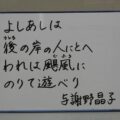 よしあしは
後の岸の人にとへ
うしろ
われは颶風に
ぐふう
のりて遊べり
与謝野晶子